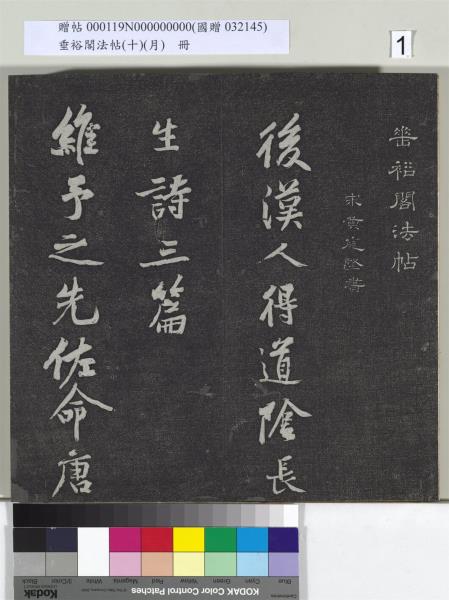 贈帖 000119N000000000(國贈 032145)
垂裕閣法帖(十)(月) 冊
1
垂裕閣法帖
宋黃庭堅書
後漢人得道陰長
生詩三篇
維予之先佐命唐
Blue Cyan Green Yellow Red Magenta White 3/Color Black
Kodak Color Control Patches